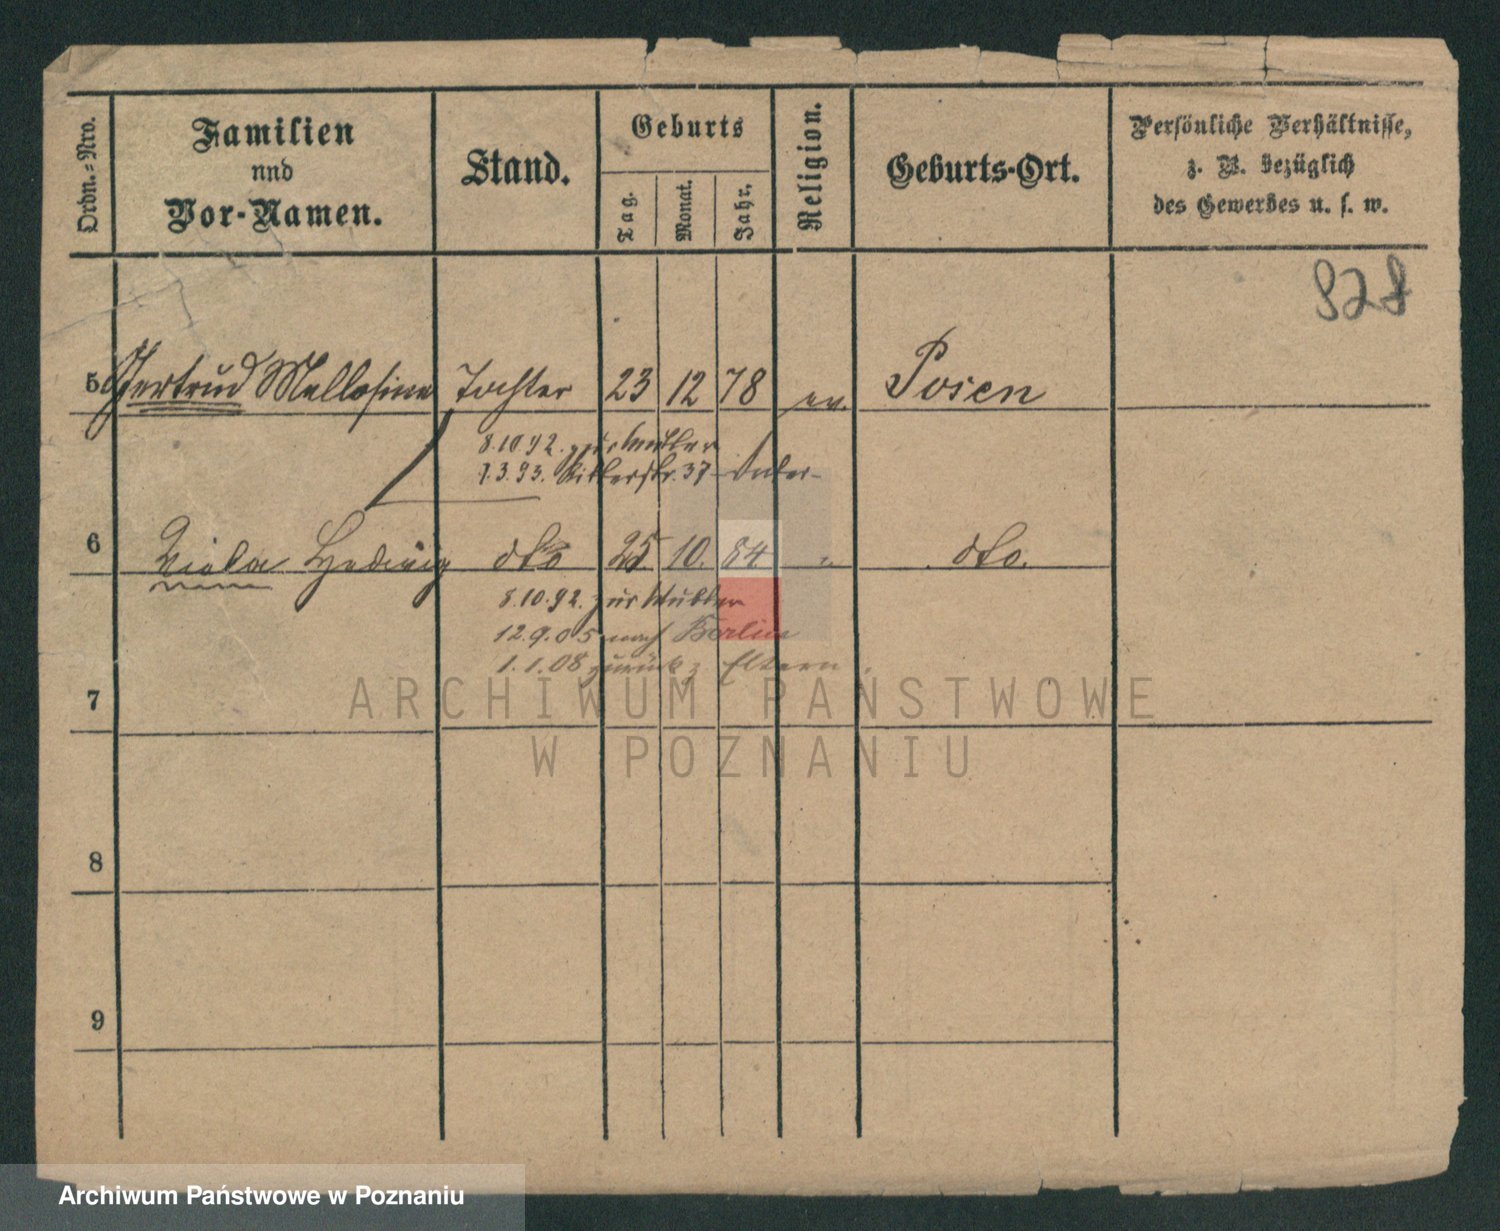 Ordn.=Nro.
Familien
und
Vor-Namen.
Stand.
Geburts
Tag.
Monat.
Jahr.
Religion.
Geburts-Ort.
Persönliche Verhältnisse,
z. B. bezüglich
des Gewerbes u. s. w.
828
5 Gertrud Mellosine Tochter 23 12 78 ev. Posen
8.10.92. zur Mutter
7.3.93. Ritterstr. 37
6 Viola Hedwig dto 25. 10. 84 " dto.
8.10.92. zur Mutter
12.9.05 nach Berlin
1.1.08 zurück z Eltern.
7
8
9
ARCHIWUM PAŃSTWOWE
W POZNANIU
Archiwum Państwowe w Poznaniu